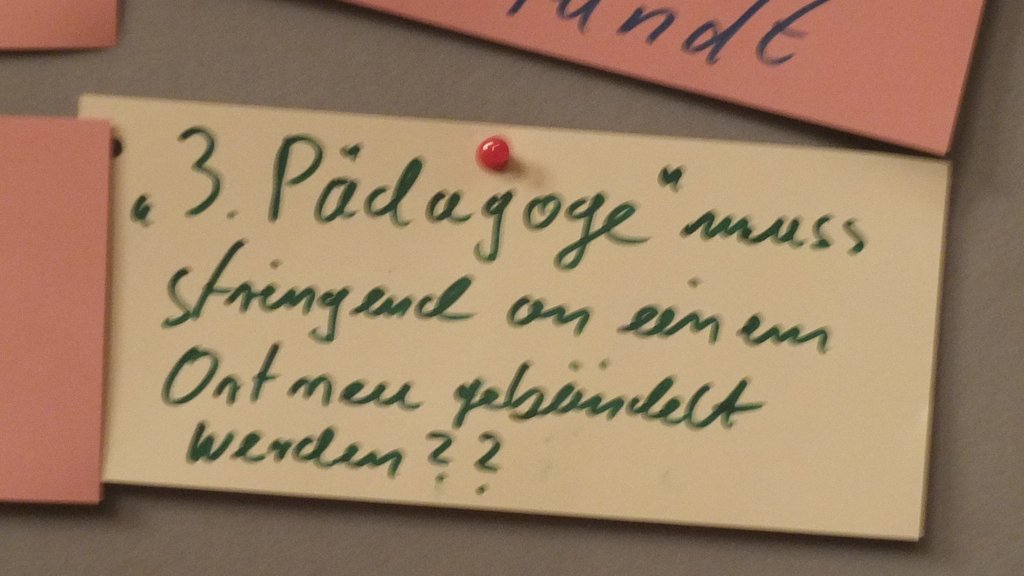 „3. Pädagoge“ muss
stringend an einem
Ort neu gebündelt
werden??